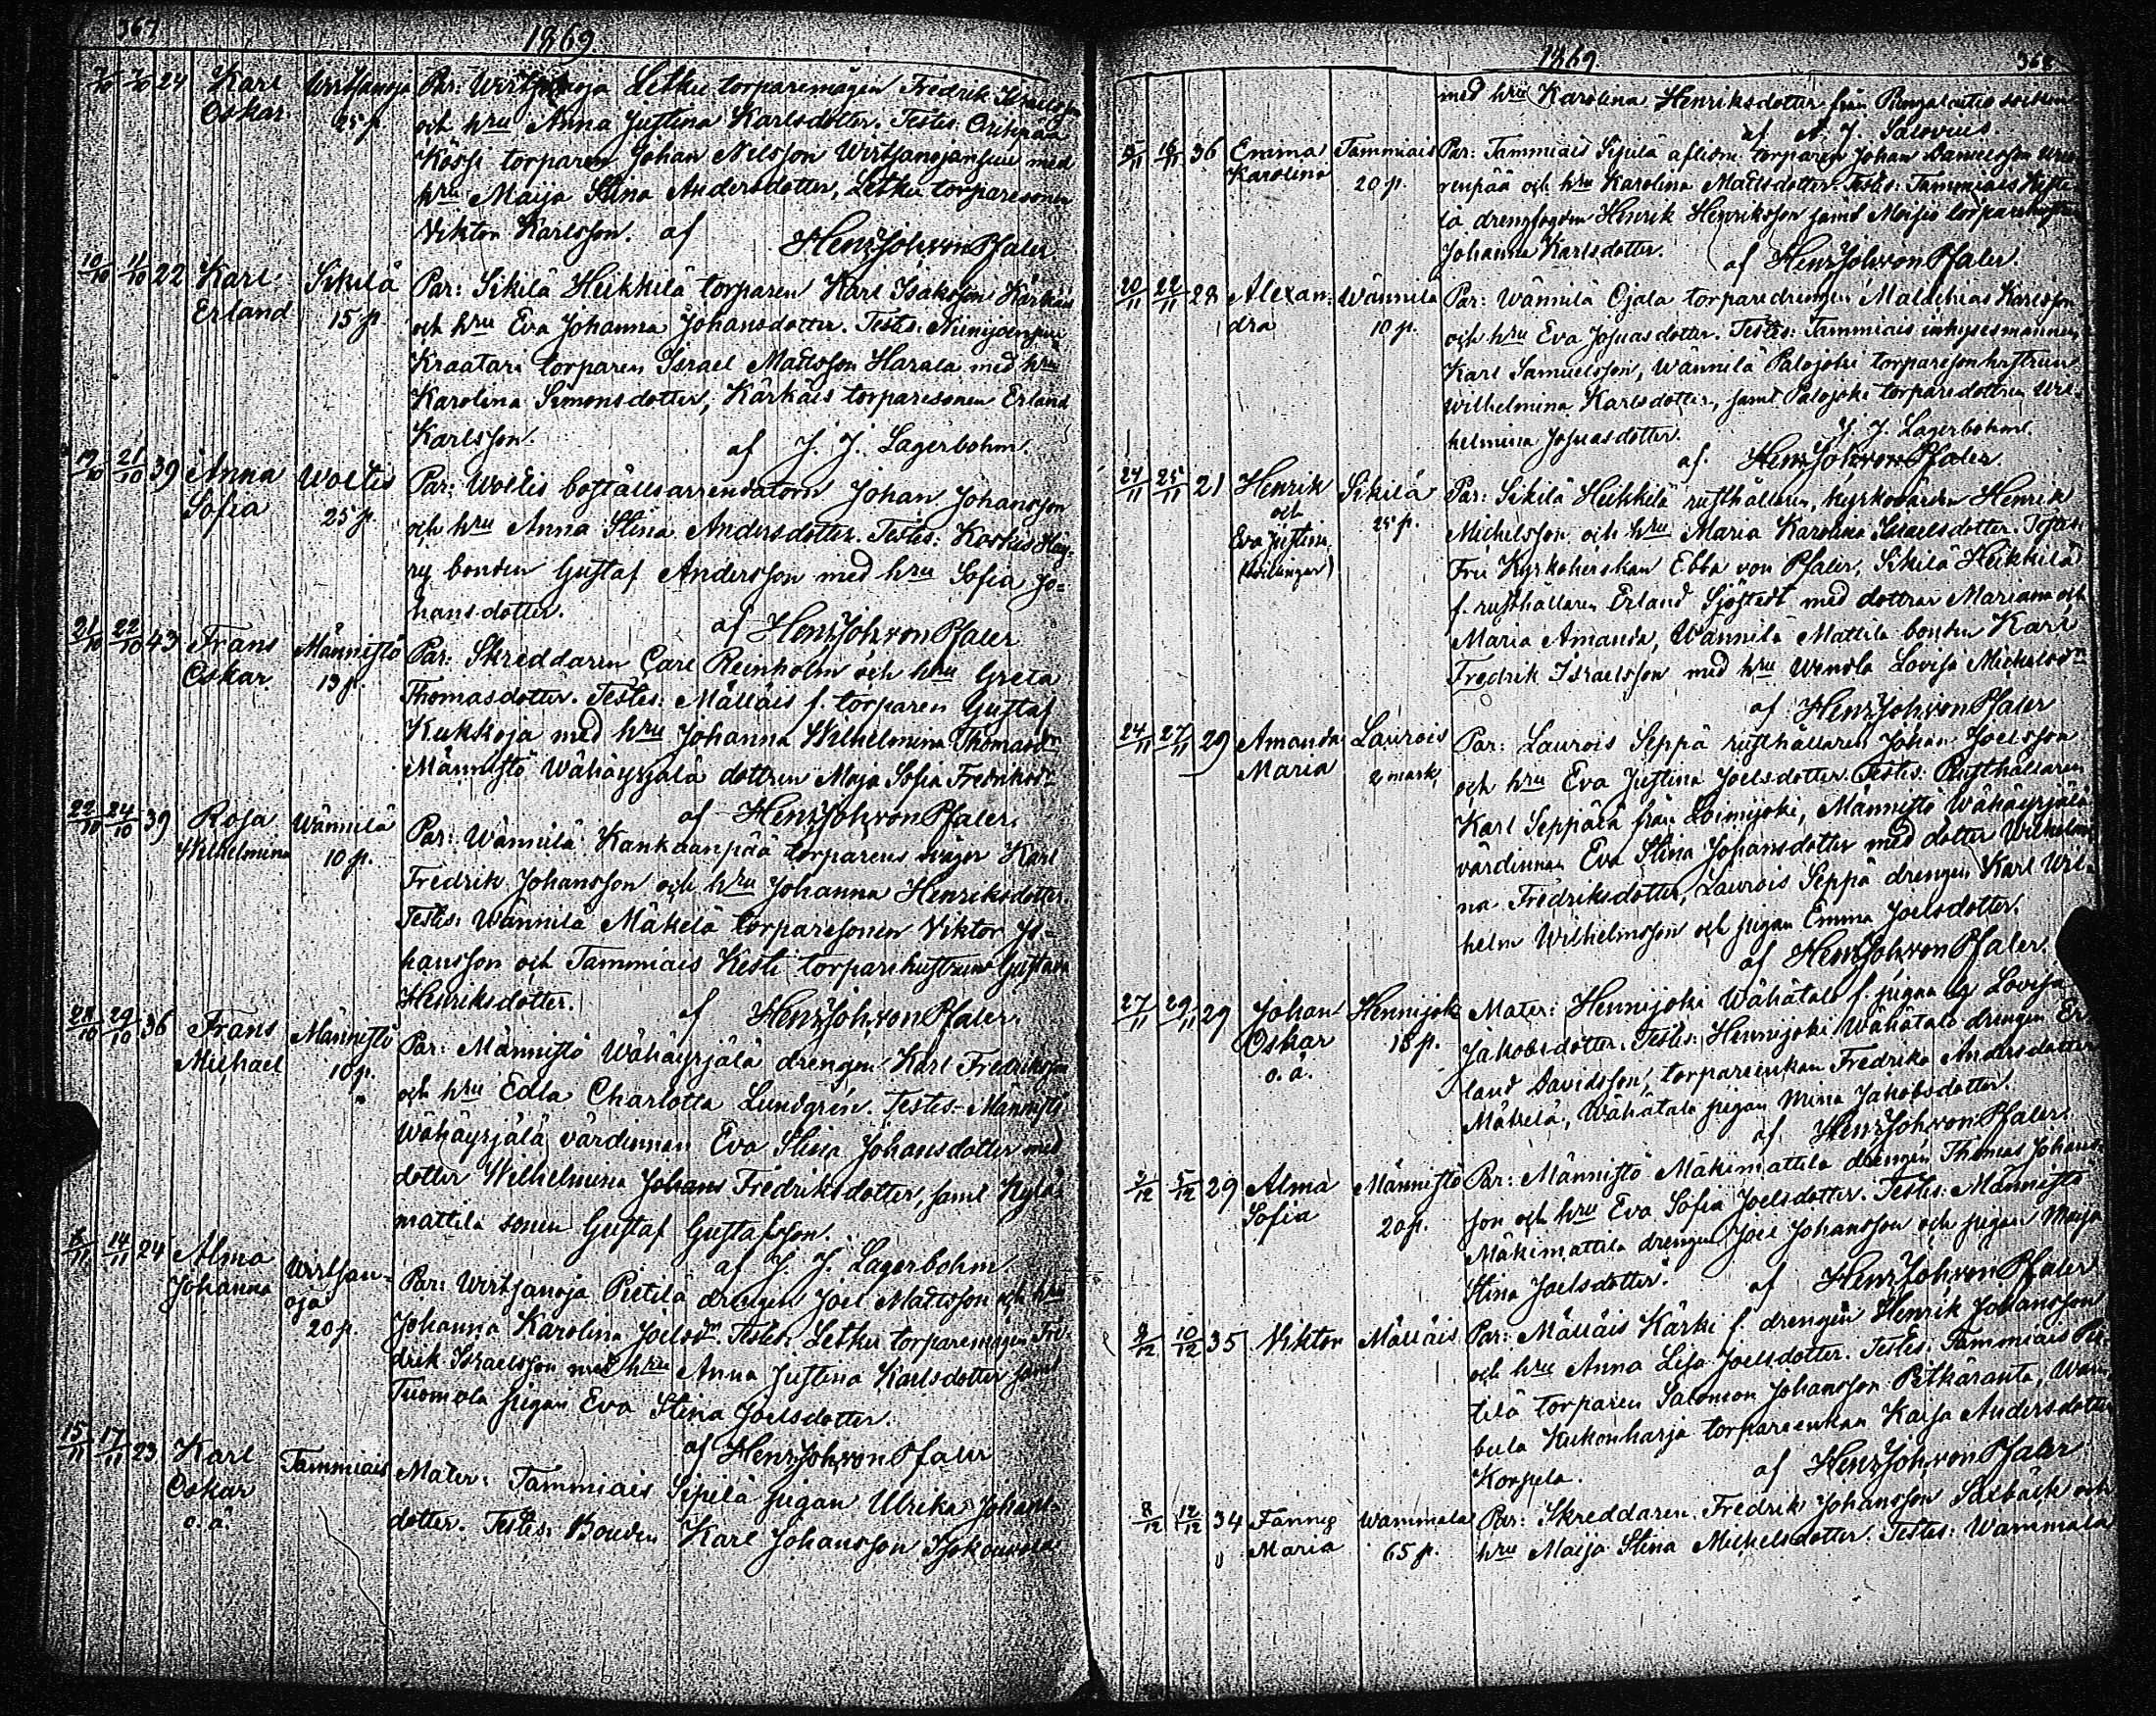 367
1869.
7/10 7/10 24 Karl Wirtsanoja Par: Wirtsanoja Letku torparemågen Fredrik Israelsson
Oskar. 25 p. och hru Anna Justina Karlsdotter. Testes: Orihpää
Kössi torparen Johan Nelsson Wirtsanojansuu med
hru Maija Stina Andersdotter, Letku torparesonen
Viktor Karlsson. af Henr Joh von Pfaler
10/10 11/10 22 Karl Sikilä Par: Sikilä Heikkilä torparen Karl Isaksson Kärkäis
Erland 15 p. och hru Eva Johanna Johansdotter. Testes: Niinijoensuu
Kraatari torparen Israel Mattsson Harala med hru
Karolina Simonsdotter, Kärkäis torparesonen Erland
Karlsson. af J. J. Lagerbohm.
19/10 21/10 39 Anna Woltis Par: Woltis boställsarrendatorn Johan Johansson
Sofia 25 p. och hru Anna Stina Andersdotter. Testes: Koskis Häy-
ry bonden Gustaf Andersson med hru Sofia Jo=
hansdotter. af Henr Joh von Pfaler
21/10 22/10 43 Frans Männistö Par: Skreddaren Carl Reinholm och hru Greta
Oskar. 13 p. Thomasdotter. Testes: Mälläis f. torparen Gustaf
Kukkoja med hru Johanna Wilhelmina Thomasdr
Männistö Wähäyrjälä dottren Maja Sofia Fredriksdr
af Henr Joh von Pfaler.
22/10 24/10 39 Rosa Wännilä Par: Wännilä Kankaanpää torparens måger Karl
Wilhelmina 10 p. Fredrik Johansson och hru Johanna Henriksdotter.
Testes: Wännilä Mäkelä torparesonen Viktor Jo-
hansson och Tammiais Kesti torparehustrun Gustava
Henriksdotter. af Henr Joh von Pfaler.
28/10 29/10 36 Frans Männistö Par: Männistö Wähäyrjälä drengen Karl Fredriksson
Michael 10 p. och hru Edla Charlotta Lundgrén. Testes- Männistö
Wähäyrjälä värdinnan Eva Stina Johansdotter med
dotter Wilhelmina Johans Fredriksdotter, samt Kylä-
mattila sonen Gustaf Gustafsson.
af J. J. Lagerbohm.
14/11 24 Alma Wirtsan- Par: Wirtsanoja Pietilä drengen Joel Mattsson och hru
Johanna oja Johanna Karolina Joelsdr. Testes: Letku torparemågen Fre-
20 p. drik Israelsson med hru Anna Justina Karlsdotter samt
Tuomola pigan Eva Stina Joelsdotter.
af Henr Joh von Pfaler
15/11 17/11 23 Karl Tammiais Mater: Tammiais Sipilä pigan Ulrika Johans-
Oskar dotter. Testes: Bonden Karl Johansson
o.ä.
1869. 368
med hru Karolina Henriksdotter från Pungalaitio socken
af A. J. Salovius.
15/11 16/11 36 Emma Tammiais Par: Tammiais Sipilä aflidne torparen Johan Danielsson Wuo-
Karolina 20 p. renpää och hru Karolina Mattsdotter. Testes: Tammiais
lä drengfogden Henrik Henriksson samt Moisio torparehustrun
Johanna Karlsdotter. af Henr Joh von Pfaler.
20/11 22/11 28 Alexan- Wännilä Par: Wännilä Ojala torparedrengen Malachias Karlsson
dra 10 p. och hru Eva Josuasdotter. Testes: Tammiais inhysesmannen
Karl Samuelsson, Wännilä Palojoki torparesonhustrun
Wilhelmina Karlsdotter, samt Palojoki torparedottren Wil-
helmina Josuasdotter. J. J. Lagerbohm.
af. Henr Joh von Pfaler.
24/11 25/11 21 Henrik Sikilä Par: Sikilä Heikkilä rusthållaren, kyrkovärden Henrik
och 25 p. Michelsson och hru Maria Karolina Israelsdotter. Testes:
Eva Justina Fru Kyrkoherskan Ebba von Pfaler, Sikilä Heikkilä
(tvillingar) f. rusthållaren Erland Sjöstedt med döttrar Mariana och
Maria Amanda, Wännilä Mattila bonden Karl
Fredrik Israelsson med hru Wendla Lovisa Michelsdr
af Henr Joh von Pfaler
24/11 27/11 29 Amanda Laurois Par: Laurois Seppä rusthållaren Johan Joelsson
Maria 2 mark och hru Eva Justina Joelsdotter. Testes: Rusthållaren
Karl Seppälä från Loimijoki, Männistö Wähäyrjälä
värdinnan Eva Stina Johansdotter med dotter Wilhelmi-
na Fredriksdotter, Laurois Seppä drengen Karl Wil-
helm Wilhelmsson och pigan Emma Joelsdotter.
af Henr Joh von Pfaler.
27/11 29/11 29 Johan Hennijoki Mater: Hennijoki Wähätalo f. pigan Lovisa
Oskar 15 p. Jakobsdotter. Testes: Hennijoki Wähätalo drengen Er-
o.ä. land Davidsson, torpareenkan Fredrika Andersdotter
Mäkelä, Wähätalo pigan Mina Jakobsdotter.
af Henr Joh von Pfaler.
5/12 29 Alma Männistö Par: Männistö Mäkimattila drengen Thomas Johans-
Sofia 20 p. son och hru Eva Sofia Joelsdotter. Testes: Männistö
Mäkimattila drengen Joel Johansson och pigan Maija
Stina Joelsdotter. af Henr Joh von Pfaler
9/12 10/12 35 Viktor Mälläis Par: Mälläis Kärki f. drengen Henrik Johansson
och hru Anna Lisa Joelsdotter. Testes: Tammiais Pie-
tilä torparen Salomon Johansson Pitkäranta, Wam-
bula Kukonharja torpareenkan Kaisa Andersdotter
Korpela. af Henr Joh von Pfaler
8/12 12/12 34 Fanny Wammala Par: Skreddaren Fredrik Johansson Salbäck och
Maria 65 p. hru Maija Stina Michelsdotter. Testes: Wammala